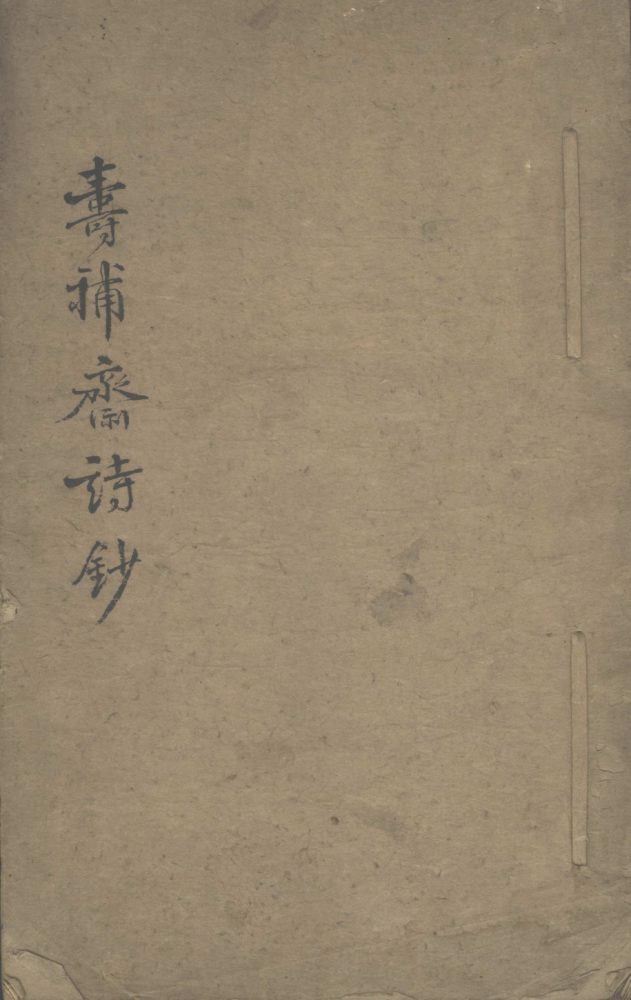 壽補齋詩鈔